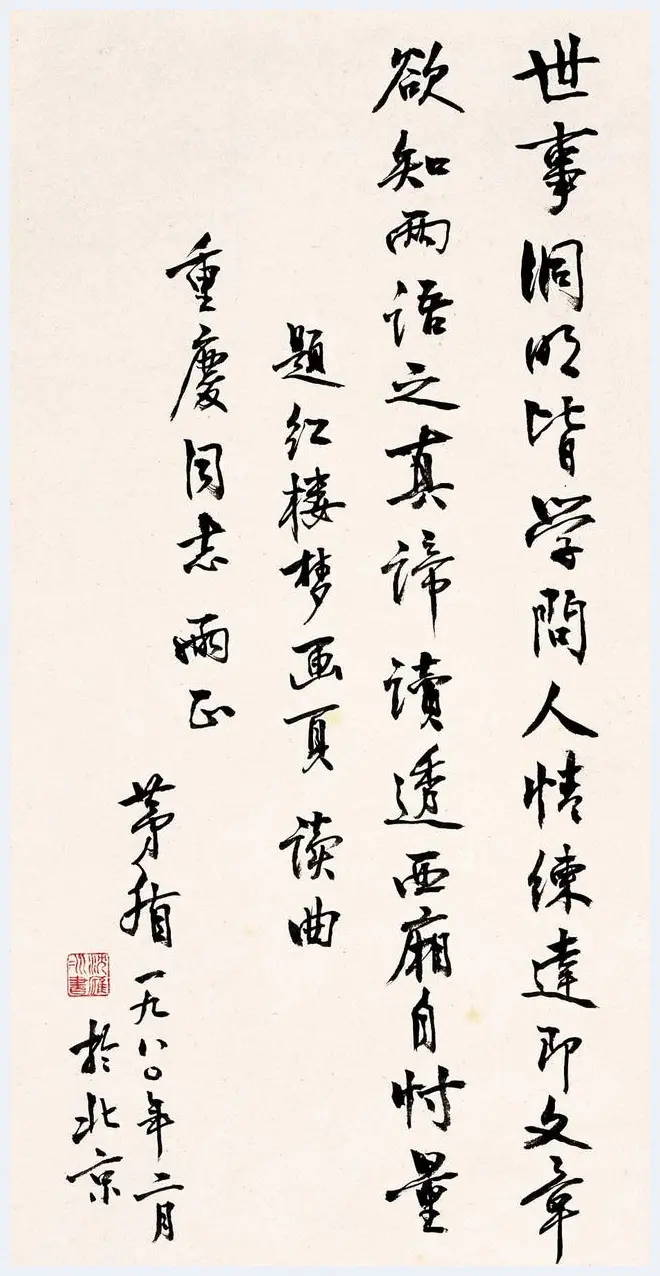 世事洞明皆学問人情練達即文章
欲知两语之真谛讀透西廂自忖量
题红楼梦画页 读曲
重慶同志 两正
茅盾 一九八〇年二月
於北京